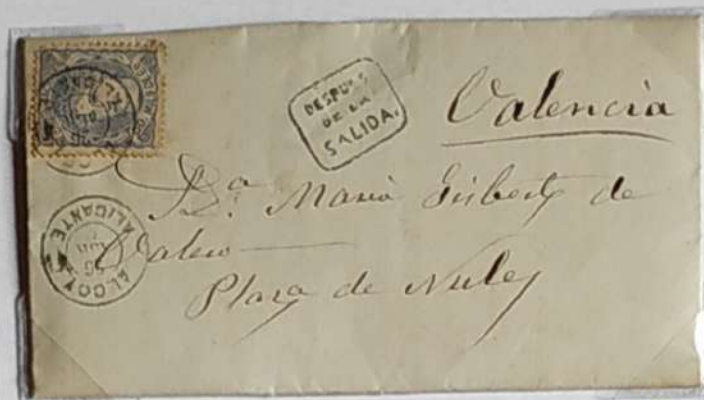 DESPUES
DE LA
SALIDA.
Valencia
D.ª Maria Gisbert de
Valero
Plaza de Nules
ALCOY
ALICANTE